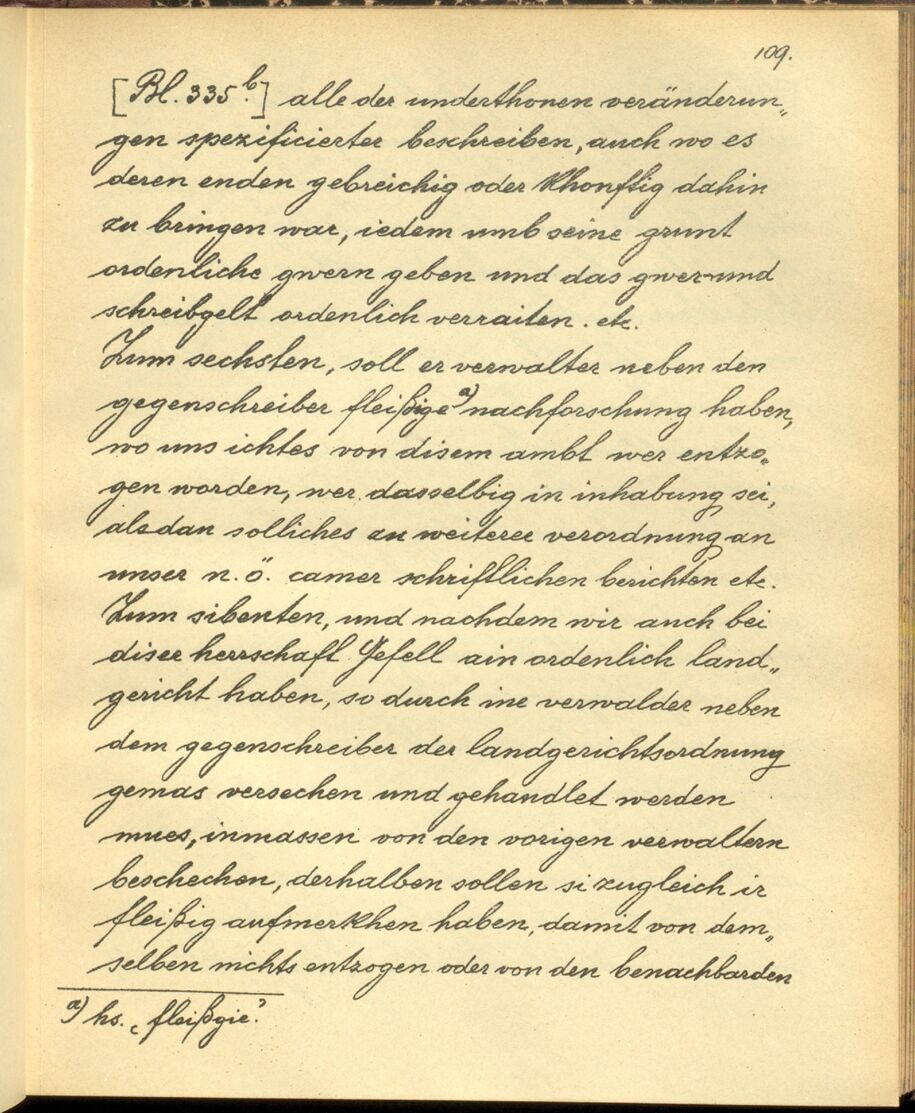 109.
[Bl. 335.b] alle der underthonen veränderun„
gen spezificierter beschreiben, auch wo es
deren enden gebreichig oder khonftig dahin
zu bringen war, iedem umb seine grunt
ordenliche gwern geben und das gwer-und
schreibgelt ordenlich verraiten. etc.
Zum sechsten, soll er verwalter neben den
gegenschreiber fleißige a) nachforschung haben,
wo uns ichtes von disem ambt wer entzo„
gen worden, wer dasselbig in inhabung sei,
alsdan solliches zu weiterer verordnung an
unser n. ö. camer schriftlichen berichten etc.
Zum sibenten, und nachdem wir auch bei
diser herrschaft Gefell ain ordenlich land„
gericht haben, so durch ine verwalder neben
dem gegenschreiber der landgerichtsordnung
gemas versechen und gehandlet werden
mues, inmassen von den vorigen verwaltern
beschechen, derhalben sollen si zugleich ir
fleißig aufmerkhen haben, damit von dem„
selben nichts entzogen oder von den benachbarden
a) hs. „fleißgie".